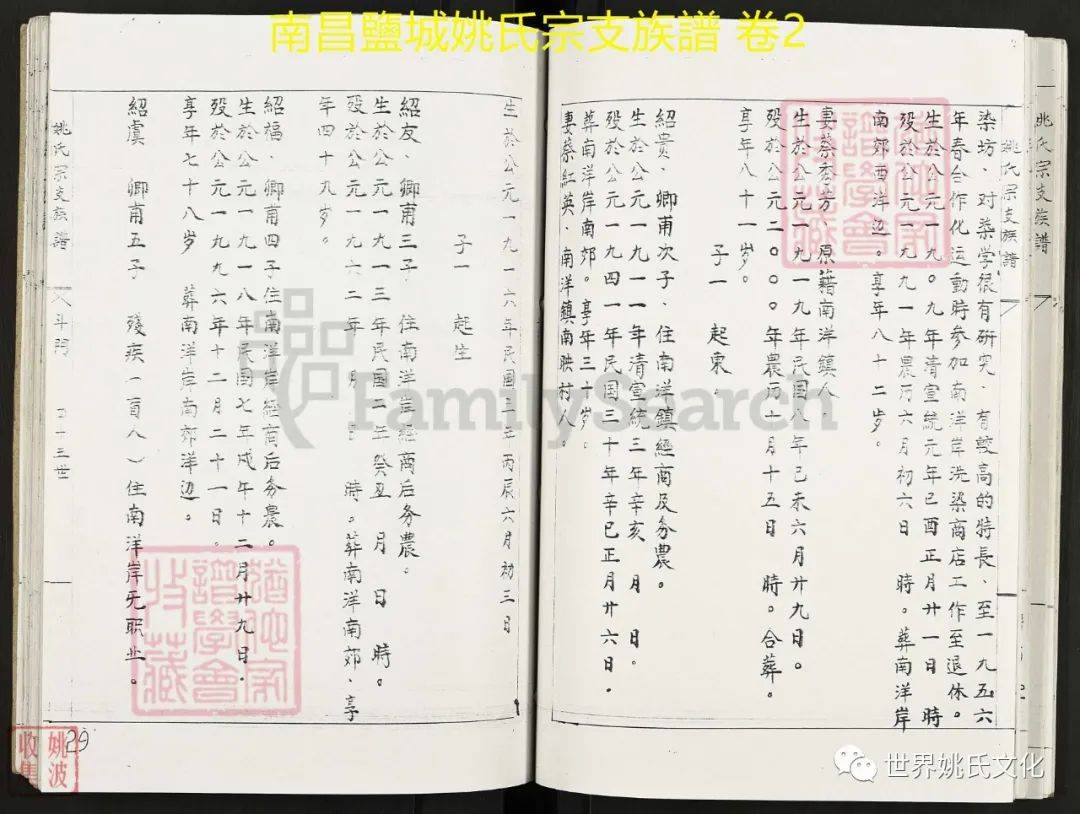 南昌鹽城姚氏宗支族譜 卷2
姚氏宗支族譜
姚氏宗支族譜
染坊．对染学很有研究．有較高的特長．至一九五六
年春合作化运動時参加南洋岸洗染商店工作至退休。
生於公元一九〇九年清宣統元年已酉正月廿一日 時
殁於公元一九九一年農历六月初六日 時。葬南洋岸
南郊西洋边。享年八十二岁。
妻蔡 芳 原籍南洋鎮人
生於公元一九一九年民國八年已未六月廿九日。
殁於公元二〇〇〇年農历十月十五日 時。合葬。
享年八十一岁。
子一 起東．
紹贵．卿甫次子．住南洋鎮經商及务農。
生於公元一九一一年清宣統三年辛亥 月 日．
殁於公元一九四一年民國三十年辛巳正月廿六日．
葬南洋岸南郊。享年三十岁。
妻蔡紅英．南洋鎮南映村人。
生於公元一九一六年民國五年丙辰六月初三日
子一 起生
紹友．卿甫三子 住南洋岸經商后务農。
生於公元一九一三年民國二年癸丑 月 日 時。
殁於公元一九六二年 月 日 時。葬南洋南郊．享
年四十九岁。
紹福．卿甫四子住南洋岸經商后务農。
生於公元一九一八年民國七年戊午十二月廿九日．
殁於公元一九九六年十二月二十一日。
享年七十八岁 葬南洋岸南郊洋边。
紹虞 卿甫五子 残疾（一百八）住南洋岸无职业。
姚氏宗支族譜 斗門 二十三世
29
譜學會
收藏
姚波
收集
FamilySearch
世界姚氏文化